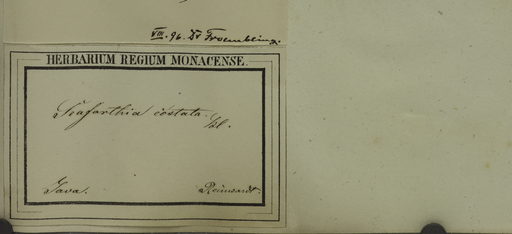 VIII. 96. Dr Froembling.
HERBARIUM REGIUM MONACENSE.
Seaforthia costata. Bl.
Java. Reinwardt.